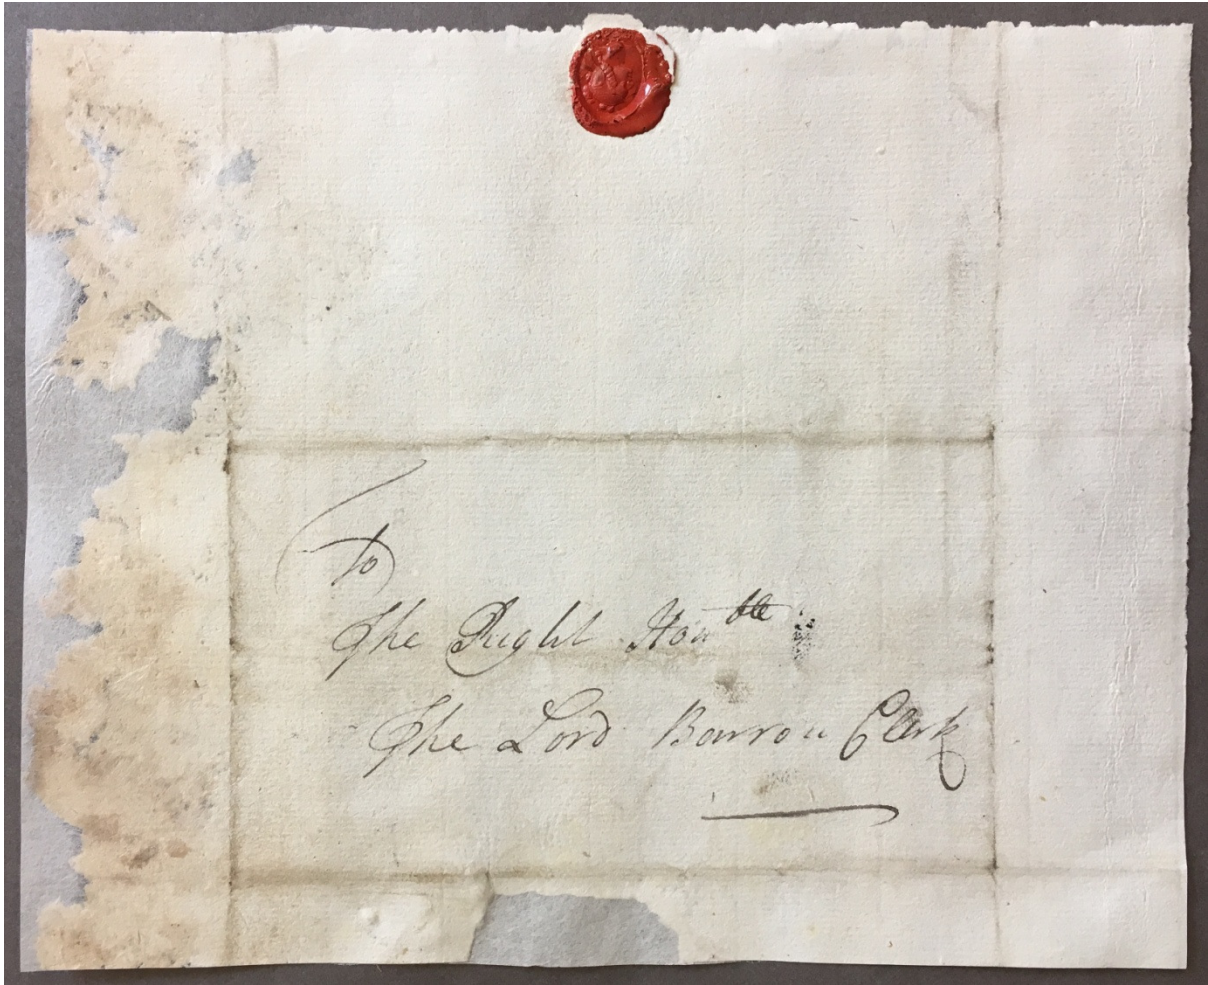 To
The Right Honble
The Lord Barron Clerk